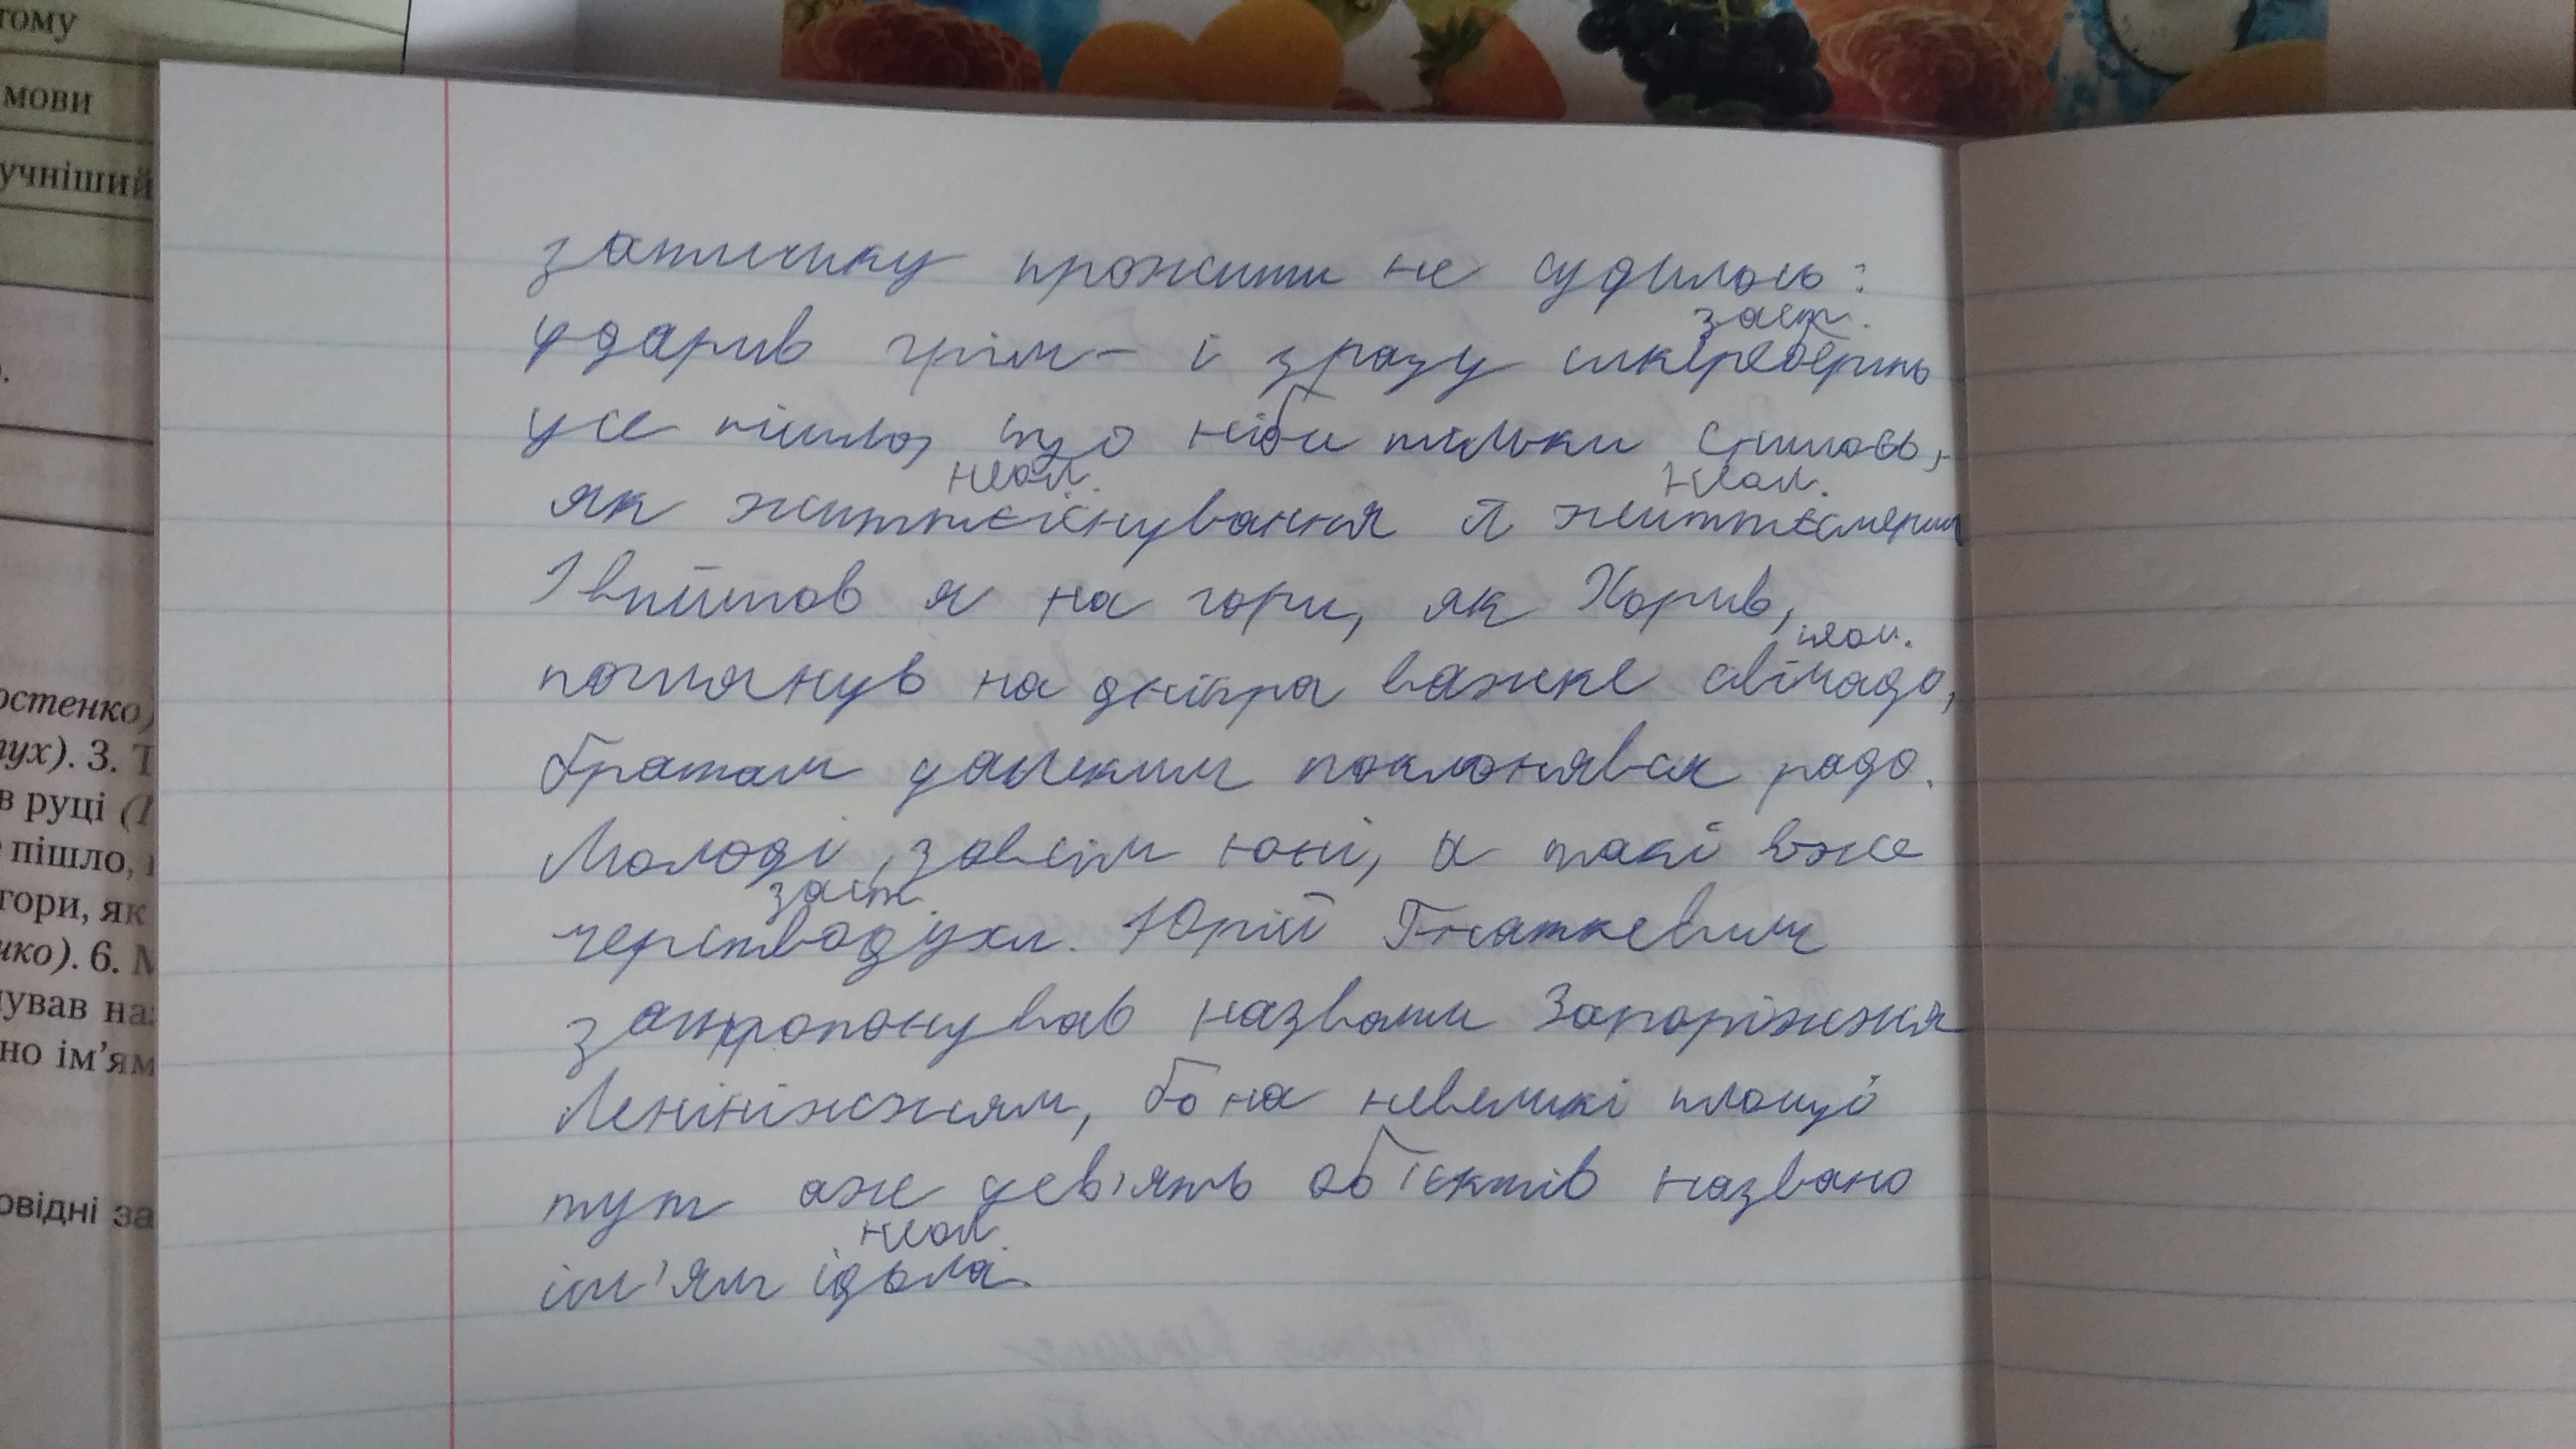 тому
мови
учніший
остенко)
ух). 3. Т
в руці (
пішло,
гори, як
нко). 6. М
ував наз
но ім'ям
овідні за
затишку прожити не судилось:
заст.
ударив грім – і зразу шкереберть
усе пішло, що ніби тільки снилось,
неол. неол.
як життєіснування й життєсмерть
І вийшов я на гори, як Хорив,
неол.
поглянув на дніпра важке свічадо,
братам далеким поклонявся радо.
Молоді, зовсім юні, а такі вже
заст.
черстводухі. Юрій Гнаткевич
запропонував назвати Запоріжжя
Ленініжжям, бо на невеликі площі
тут аж дев'ять об'єктів названо
неол.
ім'ям ідола.